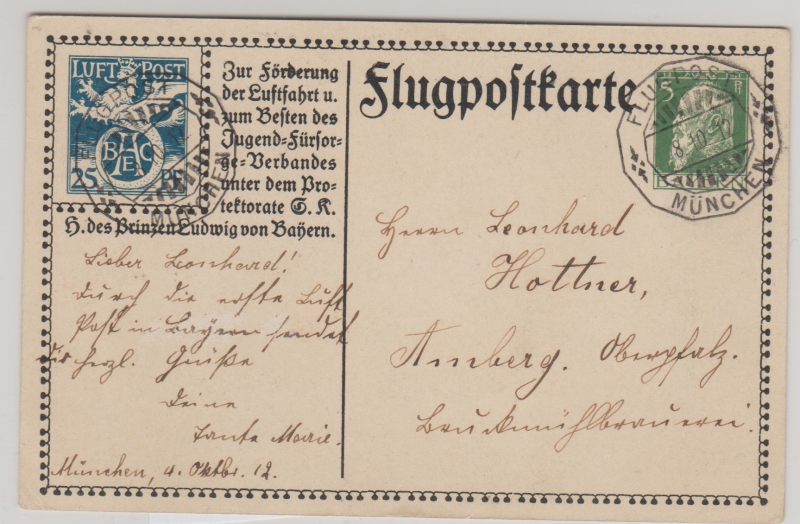 LUFT POST
BAEC
25 Pf
Zur Förderung
der Luftfahrt u.
zum Besten des
Jugend-Fürsor-
ge-Verbandes
unter dem Pro-
tektorate S. K.
H. des Prinzen Ludwig von Bayern.
Flugpostkarte
5
FLUGPOST
MÜNCHEN
FLUGPOST
MÜNCHEN
Lieber Leonhard!
Durch die erste Luft
Post in Bayern sendet
dir herzl. Grüße
Deine
Tante Marie.
München, 4. Oktbr. 12.
Herrn Leonhard
Hottner,
Amberg. Oberpfalz.
Bruckmühlbrauerei.